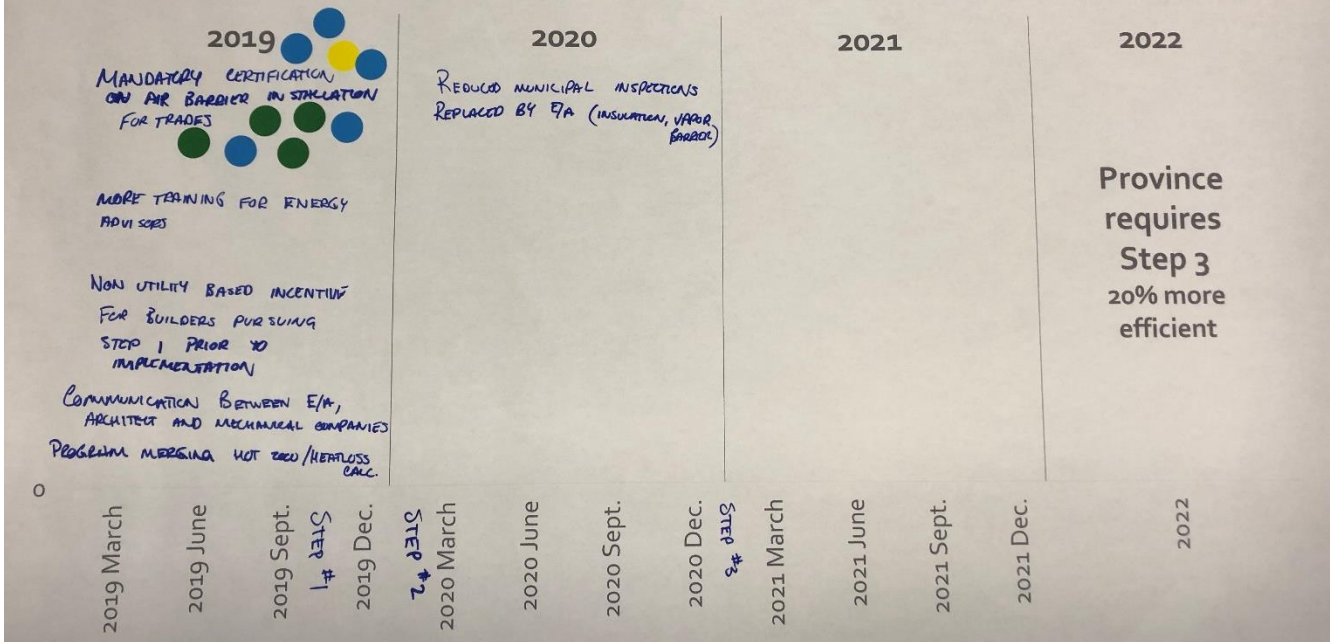 2019
MANDATORY CERTIFICATION
ON AIR BARRIER INSTALLATION
FOR TRADES
MORE TRAINING FOR ENERGY
ADVISORS
NON UTILITY BASED INCENTIVE
FOR BUILDERS PURSUING
STEP 1 PRIOR TO
IMPLEMENTATION
COMMUNICATION BETWEEN E/A,
ARCHITECT AND MECHANICAL COMPANIES
PROGRAM MERGING HOT 2000/HEATLOSS
CALC.
2020
REDUCED MUNICIPAL INSPECTIONS
REPLACED BY E/A (INSULATION, VAPOR
BARRIER)
2021
2022
Province
requires
Step 3
20% more
efficient
0
2019 March
2019 June
2019 Sept.
STEP #1
2019 Dec.
STEP #2
2020 March
2020 June
2020 Sept.
2020 Dec.
STEP #3
2021 March
2021 June
2021 Sept.
2021 Dec.
2022